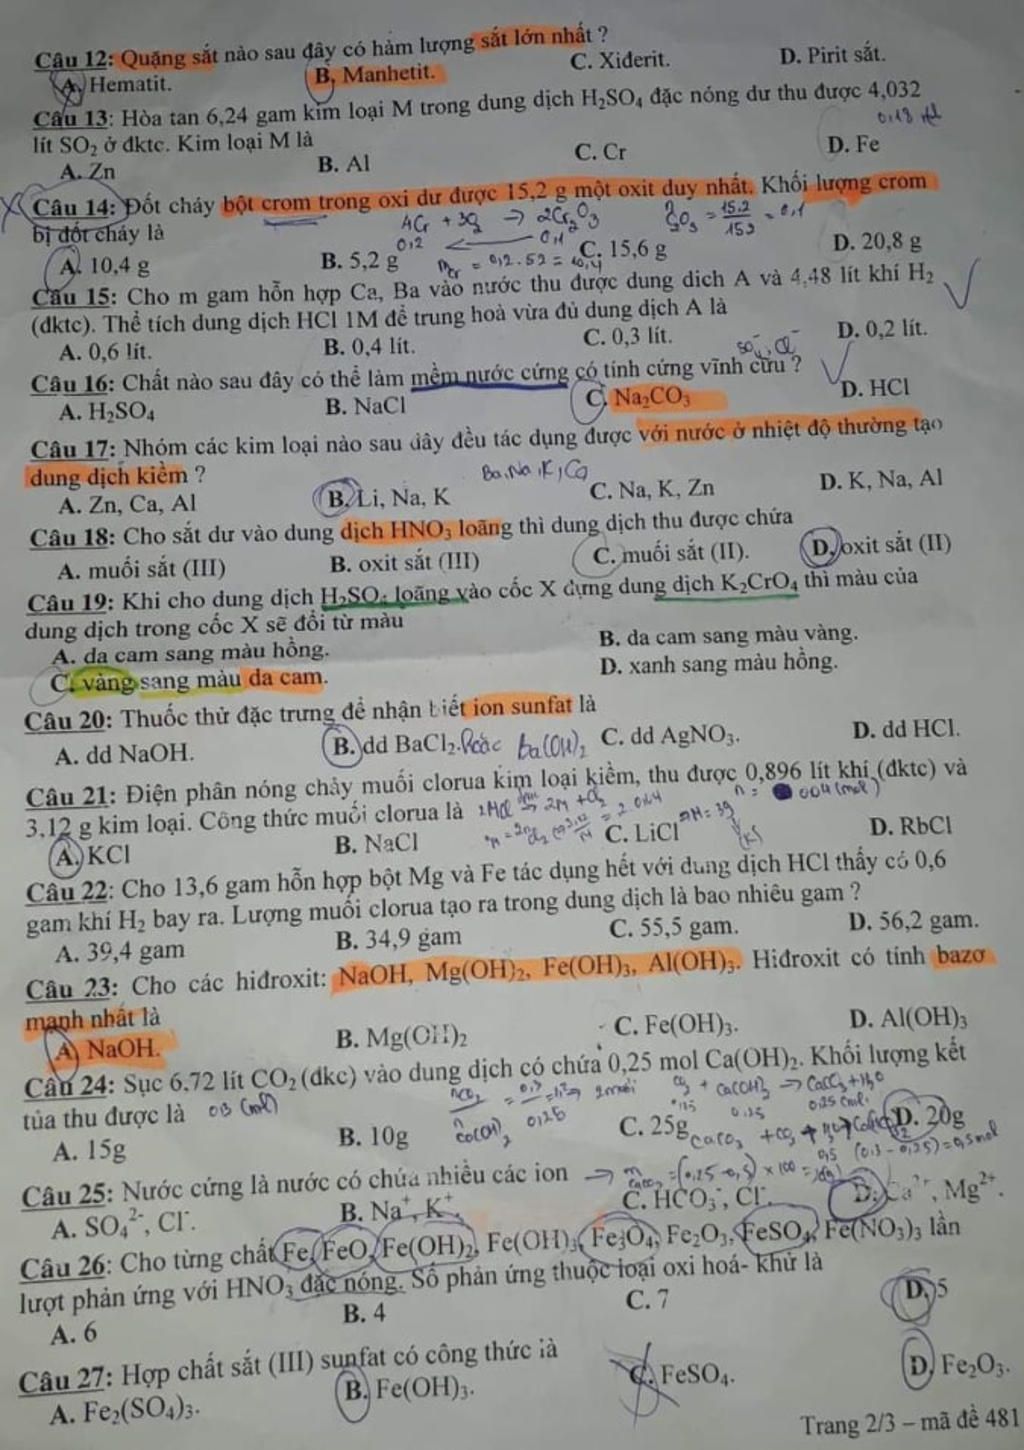 Câu 12: Quặng sắt nào sau đây có hàm lượng sắt lớn nhất ?
A. Hematit. B. Manhetit. C. Xiđerit. D. Pirit sắt.
Câu 13: Hòa tan 6,24 gam kim loại M trong dung dịch H₂SO₄ đặc nóng dư thu được 4,032
0,18 mol
lít SO₂ ở đktc. Kim loại M là
A. Zn B. Al C. Cr D. Fe
Câu 14: Đốt cháy bột crom trong oxi dư được 15,2 g một oxit duy nhất. Khối lượng crom
4Cr + 3O₂ → 2Cr₂O₃ = 15,2/152 = 0,1
bị đốt cháy là
0,2 ← 0,1
A. 10,4 g B. 5,2 g C. 15,6 g D. 20,8 g
mCr = 0,2.52 = 10,4
Câu 15: Cho m gam hỗn hợp Ca, Ba vào nước thu được dung dich A và 4,48 lít khí H₂
(đktc). Thể tích dung dịch HCl 1M để trung hoà vừa đủ dung dịch A là
A. 0,6 lít. B. 0,4 lít. C. 0,3 lít. D. 0,2 lít.
SO₄²⁻, Cl⁻
Câu 16: Chất nào sau đây có thể làm mềm nước cứng có tính cứng vĩnh cửu ?
A. H₂SO₄ B. NaCl C. Na₂CO₃ D. HCl
Câu 17: Nhóm các kim loại nào sau đây đều tác dụng được với nước ở nhiệt độ thường tạo
dung dịch kiềm ?
Ba, Na, K, Ca
A. Zn, Ca, Al B. Li, Na, K C. Na, K, Zn D. K, Na, Al
Câu 18: Cho sắt dư vào dung dịch HNO₃ loãng thì dung dịch thu được chứa
A. muối sắt (III) B. oxit sắt (III) C. muối sắt (II). D. oxit sắt (II)
Câu 19: Khi cho dung dịch H₂SO₄ loãng vào cốc X đựng dung dịch K₂CrO₄ thì màu của
dung dịch trong cốc X sẽ đổi từ màu
A. da cam sang màu hồng. B. da cam sang màu vàng.
C. vàng sang màu da cam. D. xanh sang màu hồng.
Câu 20: Thuốc thử đặc trưng để nhận biết ion sunfat là
A. dd NaOH. B. dd BaCl₂. hoặc Ba(OH)₂ C. dd AgNO₃. D. dd HCl.
Câu 21: Điện phân nóng chảy muối clorua kim loại kiềm, thu được 0,896 lít khí (đktc) và
n = 0,04 (mol)
3,12 g kim loại. Công thức muối clorua là 2MCl → 2M + Cl₂
M = 39
(K)
A. KCl B. NaCl C. LiCl D. RbCl
Câu 22: Cho 13,6 gam hỗn hợp bột Mg và Fe tác dụng hết với dung dịch HCl thấy có 0,6
gam khí H₂ bay ra. Lượng muối clorua tạo ra trong dung dịch là bao nhiêu gam ?
A. 39,4 gam B. 34,9 gam C. 55,5 gam. D. 56,2 gam.
Câu 23: Cho các hiđroxit: NaOH, Mg(OH)₂, Fe(OH)₃, Al(OH)₃. Hiđroxit có tính bazơ
mạnh nhất là
A. NaOH. B. Mg(OH)₂ C. Fe(OH)₃. D. Al(OH)₃
Câu 24: Sục 6.72 lít CO₂ (đkc) vào dung dịch có chứa 0,25 mol Ca(OH)₂. Khối lượng kết
tủa thu được là 0,3 (mol)
A. 15g B. 10g C. 25g D. 20g
Câu 25: Nước cứng là nước có chứa nhiều các ion
A. SO₄²⁻, Cl⁻. B. Na⁺, K⁺. C. HCO₃⁻, Cl⁻. D. Ca²⁺, Mg²⁺.
Câu 26: Cho từng chất Fe, FeO, Fe(OH)₂, Fe(OH)₃, Fe₃O₄, Fe₂O₃, FeSO₄, Fe(NO₃)₃ lần
lượt phản ứng với HNO₃ đặc nóng. Số phản ứng thuộc loại oxi hoá- khử là
A. 6 B. 4 C. 7 D. 5
Câu 27: Hợp chất sắt (III) sunfat có công thức là
A. Fe₂(SO₄)₃. B. Fe(OH)₃. C. FeSO₄. D. Fe₂O₃.
Trang 2/3 – mã đề 481